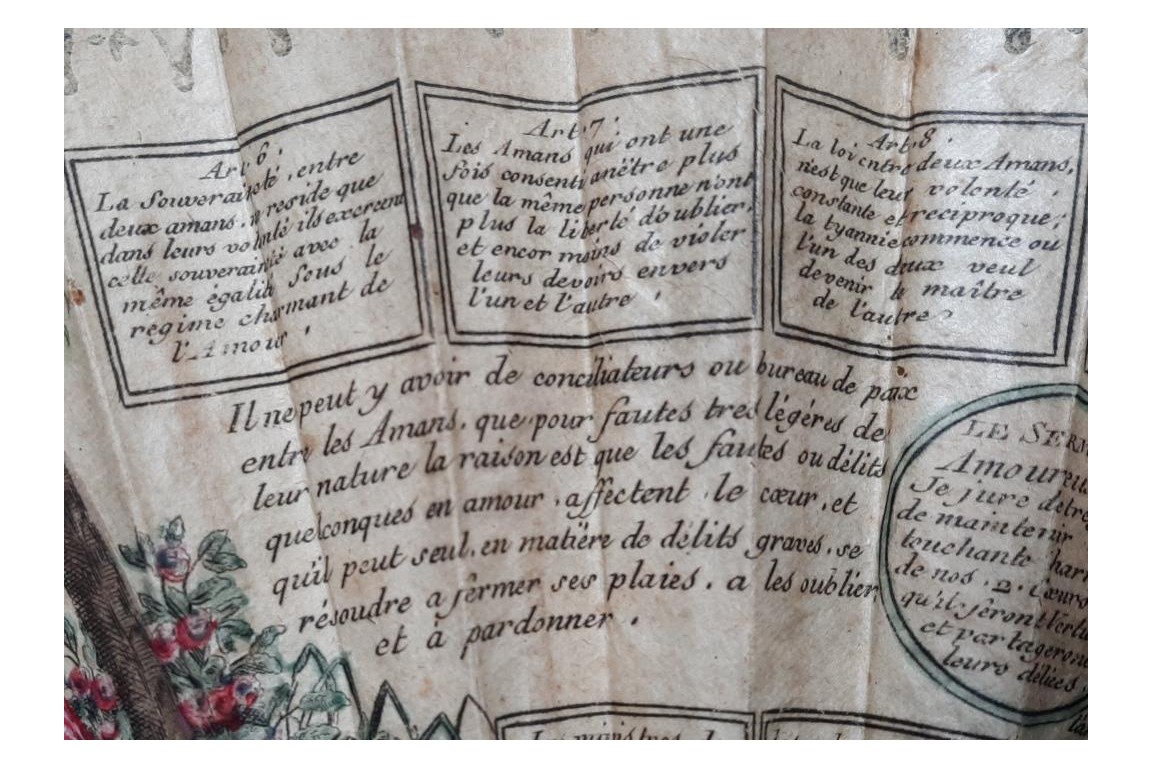 Art. 6.
La souveraineté, entre
deux amans, reside que
dans leurs volonté ils exercent
cette souveraineté avec la
même égalité sous le
régime charmant de
l'Amour.
Art. 7.
Les Amans qui ont une
fois consenti an'être plus
que la même personne n'ont
plus la liberté d'oublier,
et encor moins de violer
leurs devoirs envers
l'un et l'autre.
Art. 8.
La loi entre deux Amans,
n'est que leur volonté,
constante et réciproque;
la tyannie commence ou
l'un des deux veul
devenir le maître
de l'autre.
Il ne peut y avoir de conciliateurs ou bureau de paix
entre les Amans, que pour fautes tres légéres de
leur nature la raison est que les fautes ou délits
quelconques en amour, affectent le cœur, et
qu'il peut seul, en matière de délits graves, se
résoudre a fermer ses plaies, a les oublier
et à pardonner.
LE SERM
Amoureux
Je jure d'etre
de maintenir
touchante har
de nos 2. Cœurs
qu'il feront
et partageron
leurs délices.